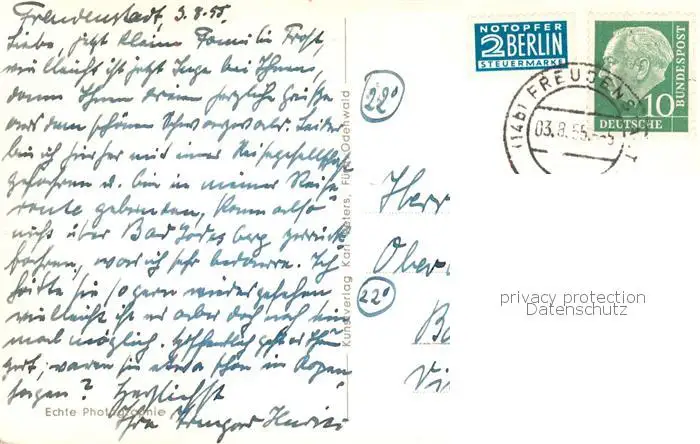 Freudenstadt, 3.8.55.
Liebe, jetzt kleine Familie Frost,
vielleicht ist jetzt Inge bei Ihnen,
dann Ihnen dreien herzliche Grüße
aus dem schönen Schwarzwald. Leider
bin ich hierher mit einer Reisegesellschaft
gefahren u. bin in meiner Reise
route gebunden, kann also
nicht über Bad Godesberg zurück
fahren, was ich sehr bedaure. Ich
hätte Sie so gern wiedergesehen
vielleicht ist es aber doch noch ein
mal möglich. Hoffentlich geht es Ihnen
gut; waren Sie etwa schon in Kopen
hagen? Herzlichst
Ihre Irmgard
Echte Photographie
Kunstverlag Karl Peters, Fürth Odenwald
NOTOPFER
2 BERLIN
STEUERMARKE
DEUTSCHE
BUNDESPOST
10
(14b) FREUDENSTADT
03.8.55.
220
Herr
Ober
220
Ba
Vi
privacy protection
Datenschutz